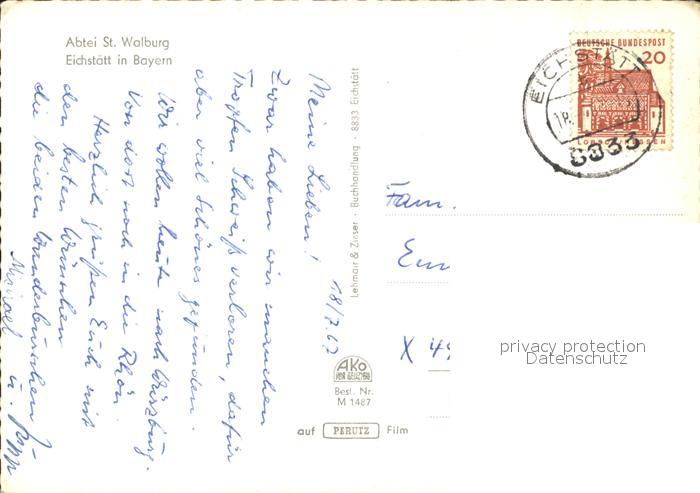 Abtei St. Walburg
Eichstätt in Bayern
Meine Lieben!
18/7. 67
Zwar haben wir manchen
Tropfen Schweiß verloren, dafür
aber viel Schönes gefunden.
Wir wollen heute nach Würzburg.
Von dort noch in die Rhön.
Herzlich grüßen Euch mit
den besten Wünschen
die beiden Wanderburschen
u.
Lehmair & Zinser · Buchhandlung · 8833 Eichstätt
AKO
Best. Nr.
M 1487
auf PERUTZ Film
DEUTSCHE BUNDESPOST
20
EICHSTÄTT
18.
8833
Fam.
X
privacy protection
Datenschutz